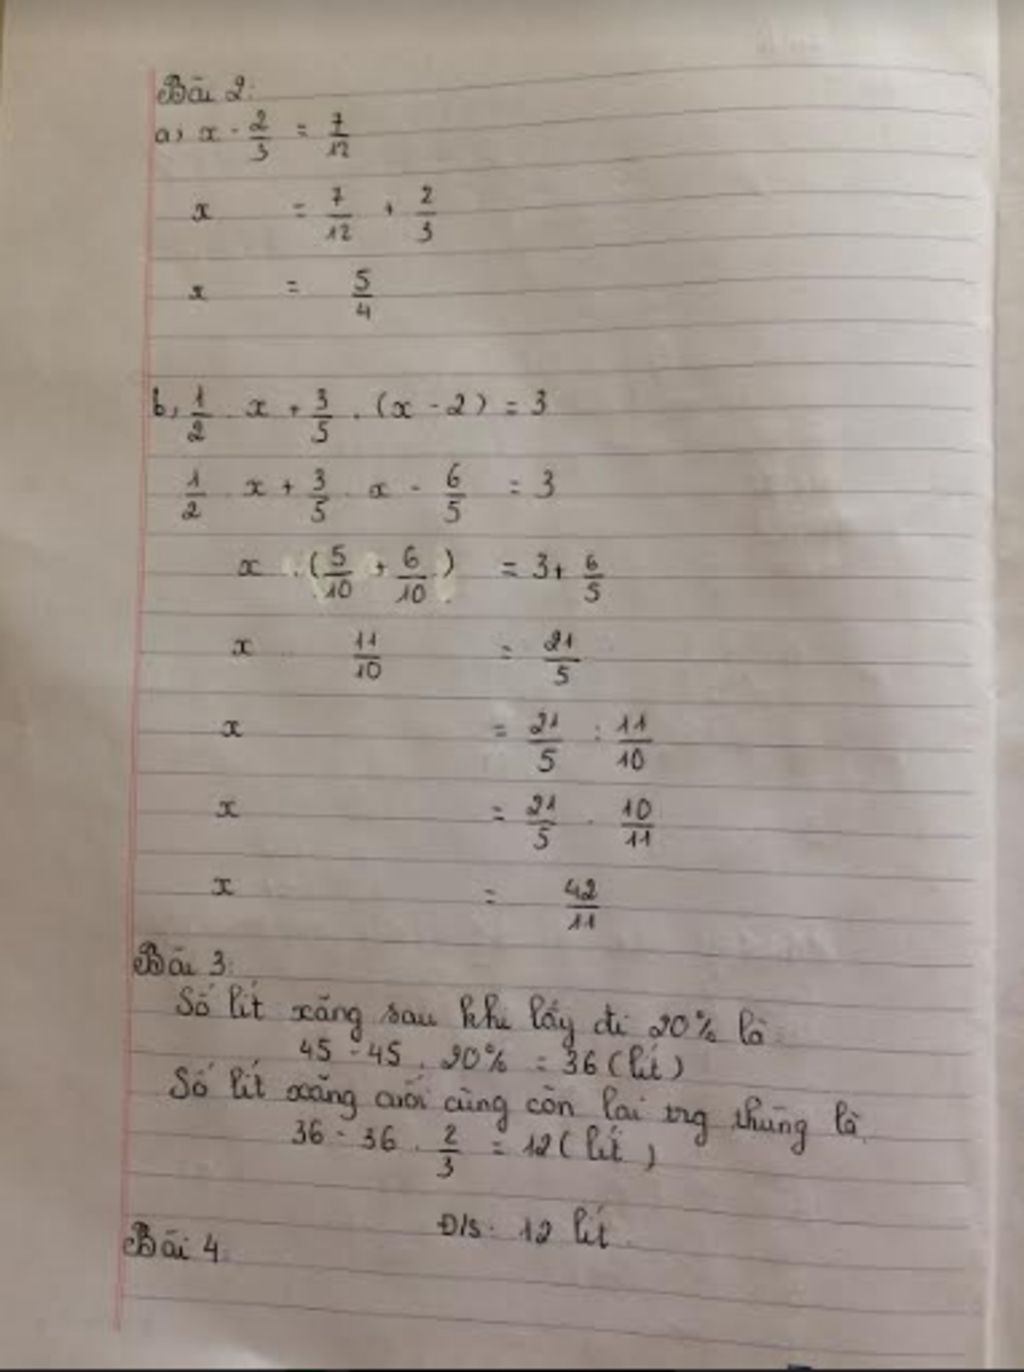 Bài 2:
a, x - 2/3 = 7/12
x = 7/12 + 2/3
x = 5/4
b, 1/2 . x + 3/5 . (x - 2) = 3
1/2 . x + 3/5 . x - 6/5 = 3
x . (5/10 + 6/10) = 3 + 6/5
x . 11/10 = 21/5
x = 21/5 : 11/10
x = 21/5 . 10/11
x = 42/11
Bài 3:
Số lít xăng sau khi lấy đi 20% là
45 - 45 . 20% = 36 (lít)
Số lít xăng cuối cùng còn lại trg thùng là
36 - 36 . 2/3 = 12 (lít)
Đ/s: 12 lít
Bài 4: